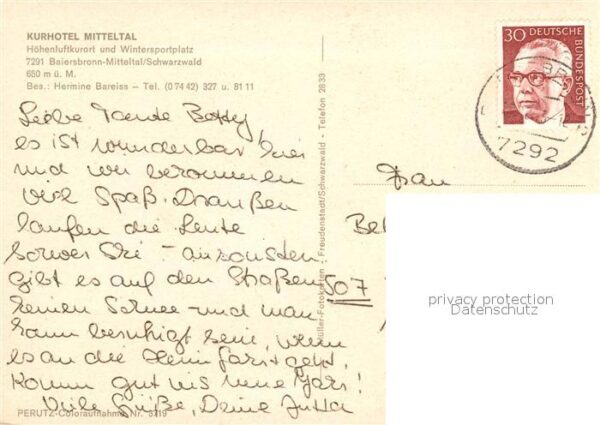 KURHOTEL MITTELTAL
Höhenluftkurort und Wintersportplatz
7291 Baiersbronn-Mitteltal/Schwarzwald
650 m ü. M.
Bes.: Hermine Bareiss – Tel. (0 74 42) 327 u. 81 11
Liebe Tante Betty!
es ist wunderbar hier
und wir bekommen
viel Spaß. Draußen
laufen die Leute
Ski – ansonsten
gibt es auf den Straßen
keinen Schnee – und man
kann beruhigt sein, wenn
es an die Heimfahrt geht.
Komm gut ins neue Jahr!
Viele Grüße, Deine Jutta
PERUTZ-Coloraufnahme Nr. 5719
Freudenstadt/Schwarzwald - Telefon 2833
30 DEUTSCHE
BUNDESPOST
7292
Frau
507
privacy protection
Datenschutz